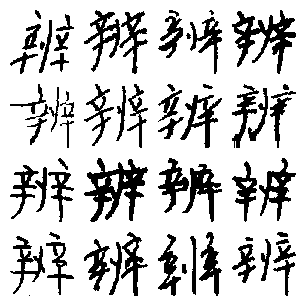 辨辨辨辨
辨辨辨辨
辨辨辨辨
辨辨辨辨